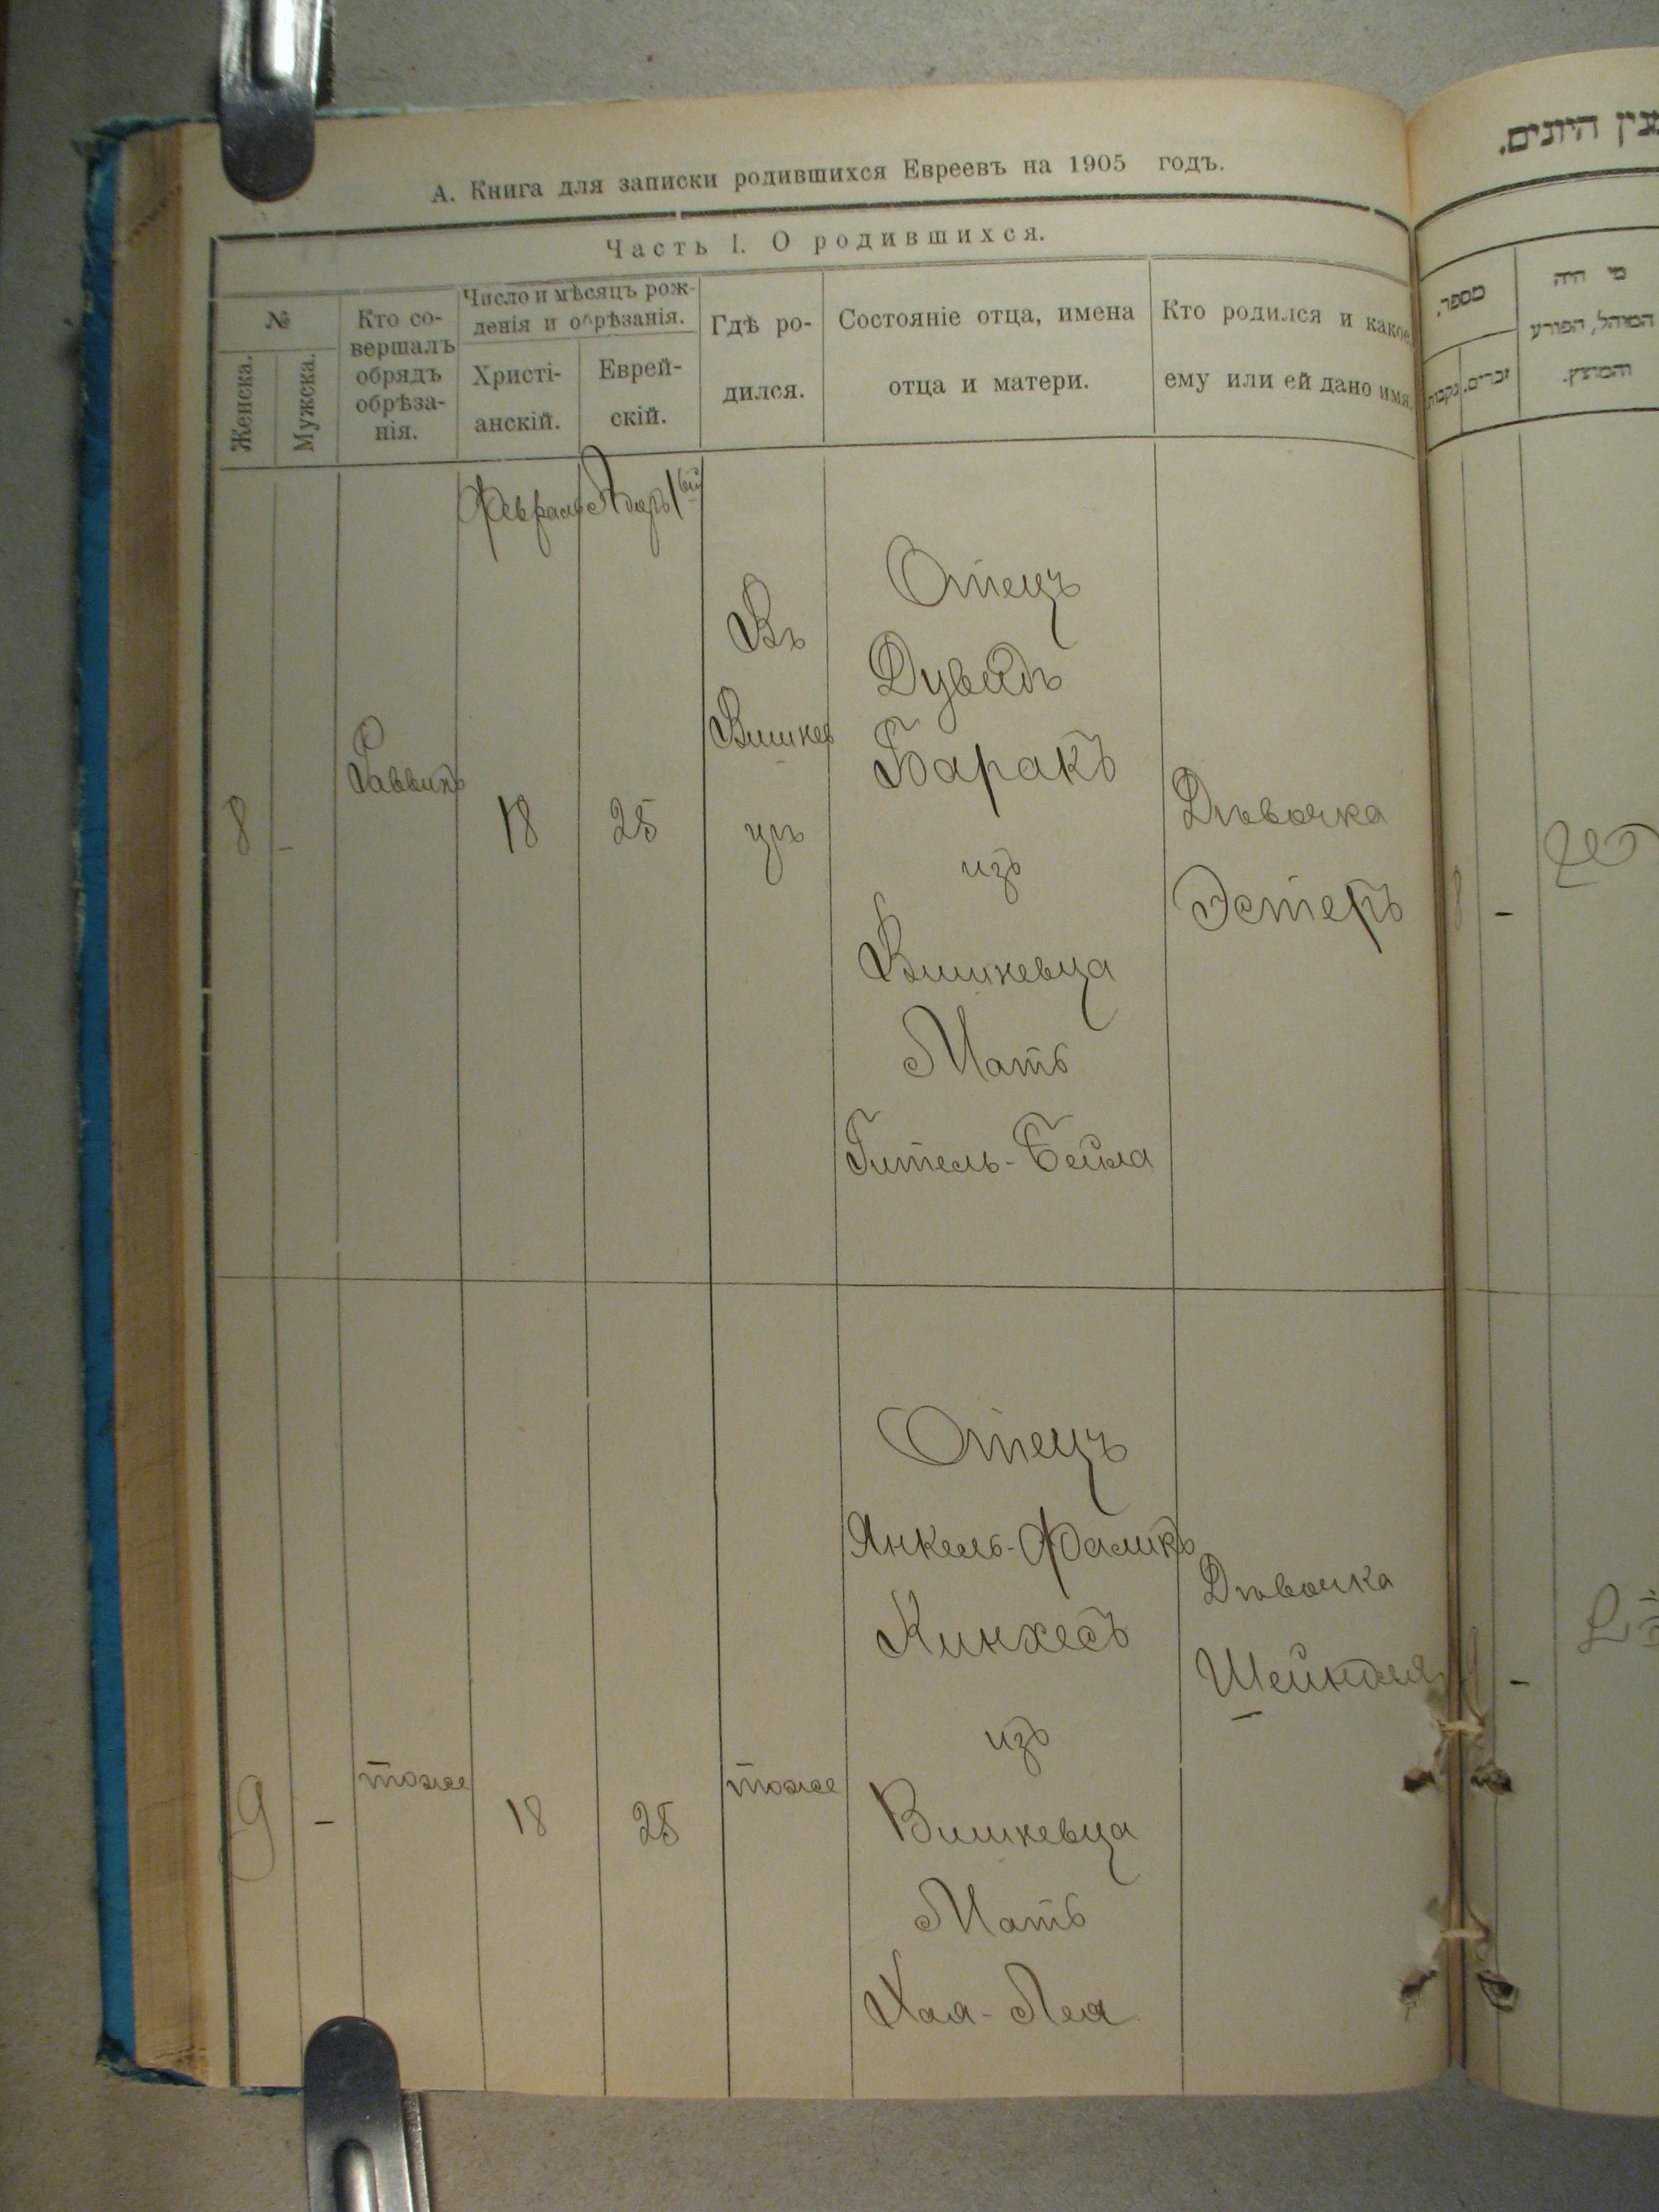 А. Книга для записки родившихся Евреевъ на 1905 годъ.
Часть I. О родившихся.
№
Женска.
Мужска.
Кто со-
вершалъ
обрядъ
обрѣза-
нія.
Число и мѣсяцъ рож-
денія и обрѣзанія.
Христі-
анскій.
Еврей-
скій.
Гдѣ ро-
дился.
Состояніе отца, имена
отца и матери.
Кто родился и какое
ему или ей дано имя.
Февраль
Адаръ 1ый
8
-
Раввинъ
18
25
Въ
Вишкев
цѣ
Отецъ
Дувидъ
Баракъ
изъ
Вишкевца
Мать
Гитель-Бейла
Дѣвочка
Эстеръ
9
-
тоже
18
25
тоже
Отецъ
Янкель-Фаликъ
Кинхесъ
изъ
Вишкевца
Мать
Хая-Лея
Дѣвочка
Шейндля
היונים.
מספר.
זכרים.
נקבות
מי היה
המוהל, הפורע
והמוצץ.
8
-
-